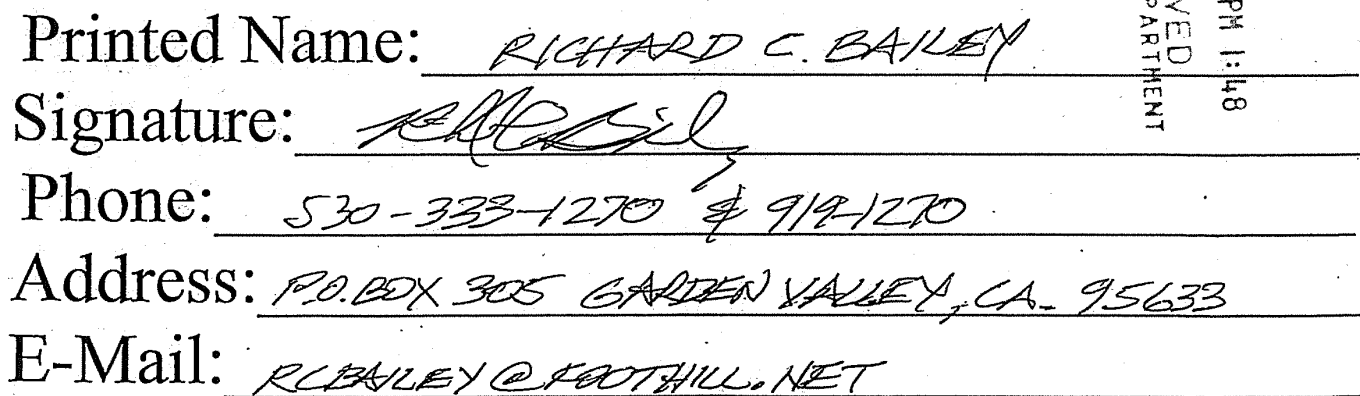 Printed Name: RICHARD C. BAILEY
Signature:
Phone: 530-333-1270 & 919-1270
Address: P.O. BOX 305 GARDEN VALLEY, CA. 95633
E-Mail: RCBAILEY@FOOTHILL.NET
PM 1:48
VED
PARTMENT